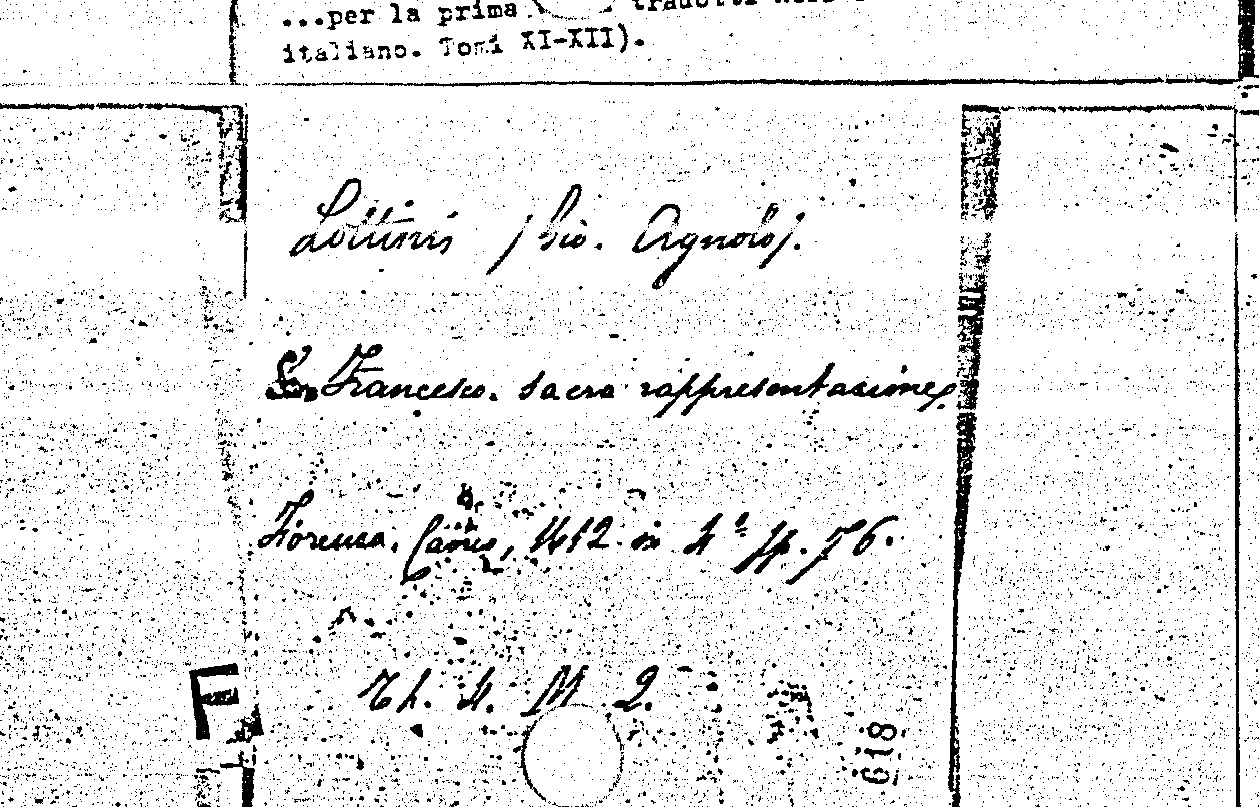 ...per la prima tradotti
italiano. Tomi XI-XII).
Lottinis (Gio. Agnolo).
San Francesco. sacra rappresentazione.
Fiorenza. 1612 in 4° pp. 76.
Th. 4. M 2.
618
F